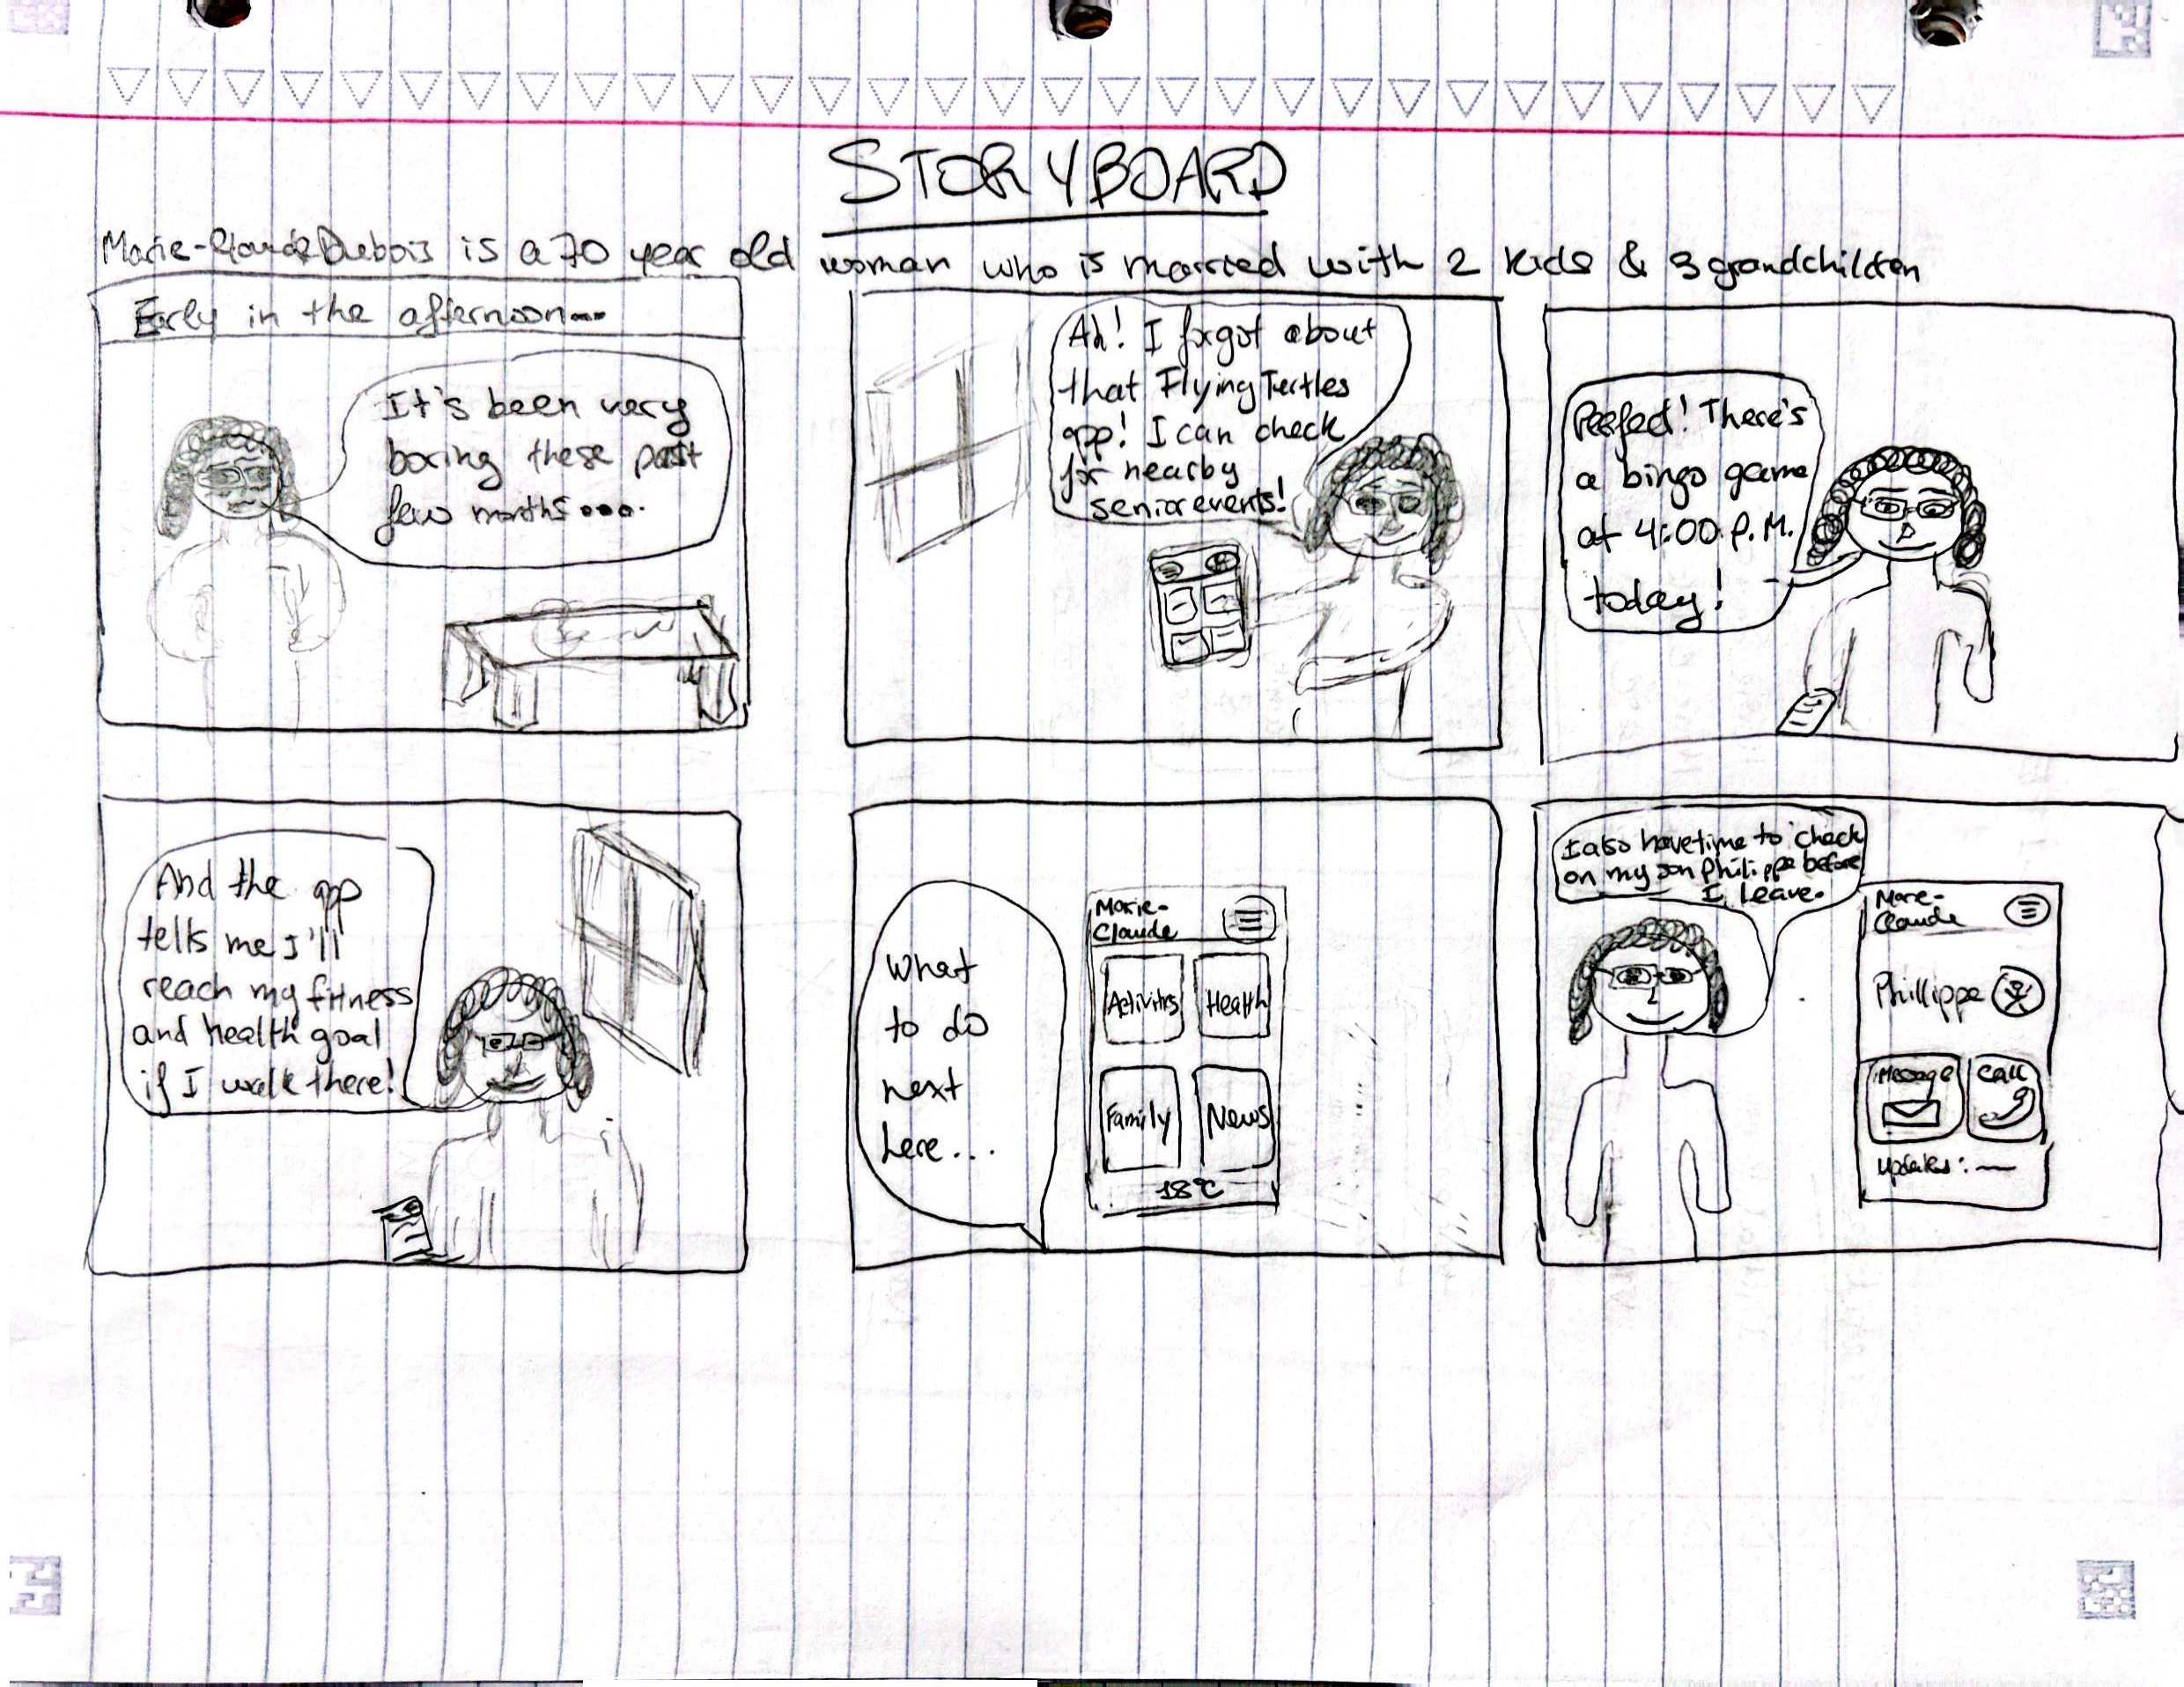 STORYBOARD
Marie-Claude Dubois is a 70 year old woman who is married with 2 kids & 3 grandchildren
Early in the afternoon...
It's been very
boring these past
few months....
Ah! I forgot about
that Flying Turtles
app! I can check
for nearby
senior events!
Perfect! There's
a bingo game
at 4:00 P.M.
today!
And the app
tells me I'll
reach my fitness
and health goal
if I walk there!
What
to do
next
here...
Marie-
Claude
Activities Health
Family News
18°C
I also have time to check
on my son Philippe before
I leave.
Marie-
Claude
Phillippe
Message Call
Updates: